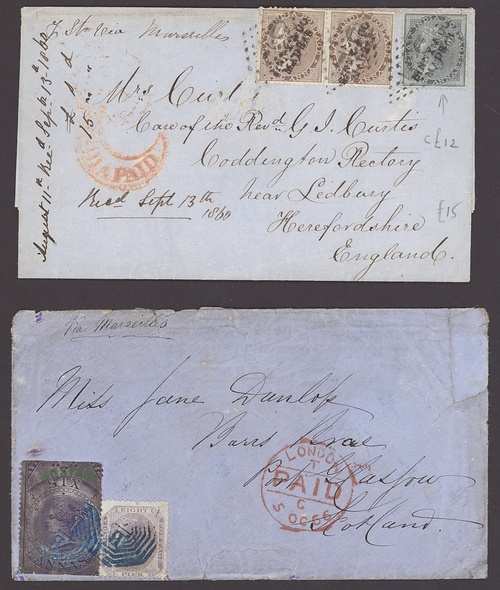 via Marseilles
Mrs Curtis
Care of the Revd. G. J. Curtis
Coddington Rectory
near Ledbury
Herefordshire
England.
Recd Sept 13th
1860
August 11th Recd Sept 13th 1860
PAID
£12
£15
via Marseilles
Miss Jane Dunlop
Barrs Brae
Port Glasgow
Scotland.
LONDON
T
PAID
C
5 OC 66
SIX
ANNAS
EIGHT
PIES